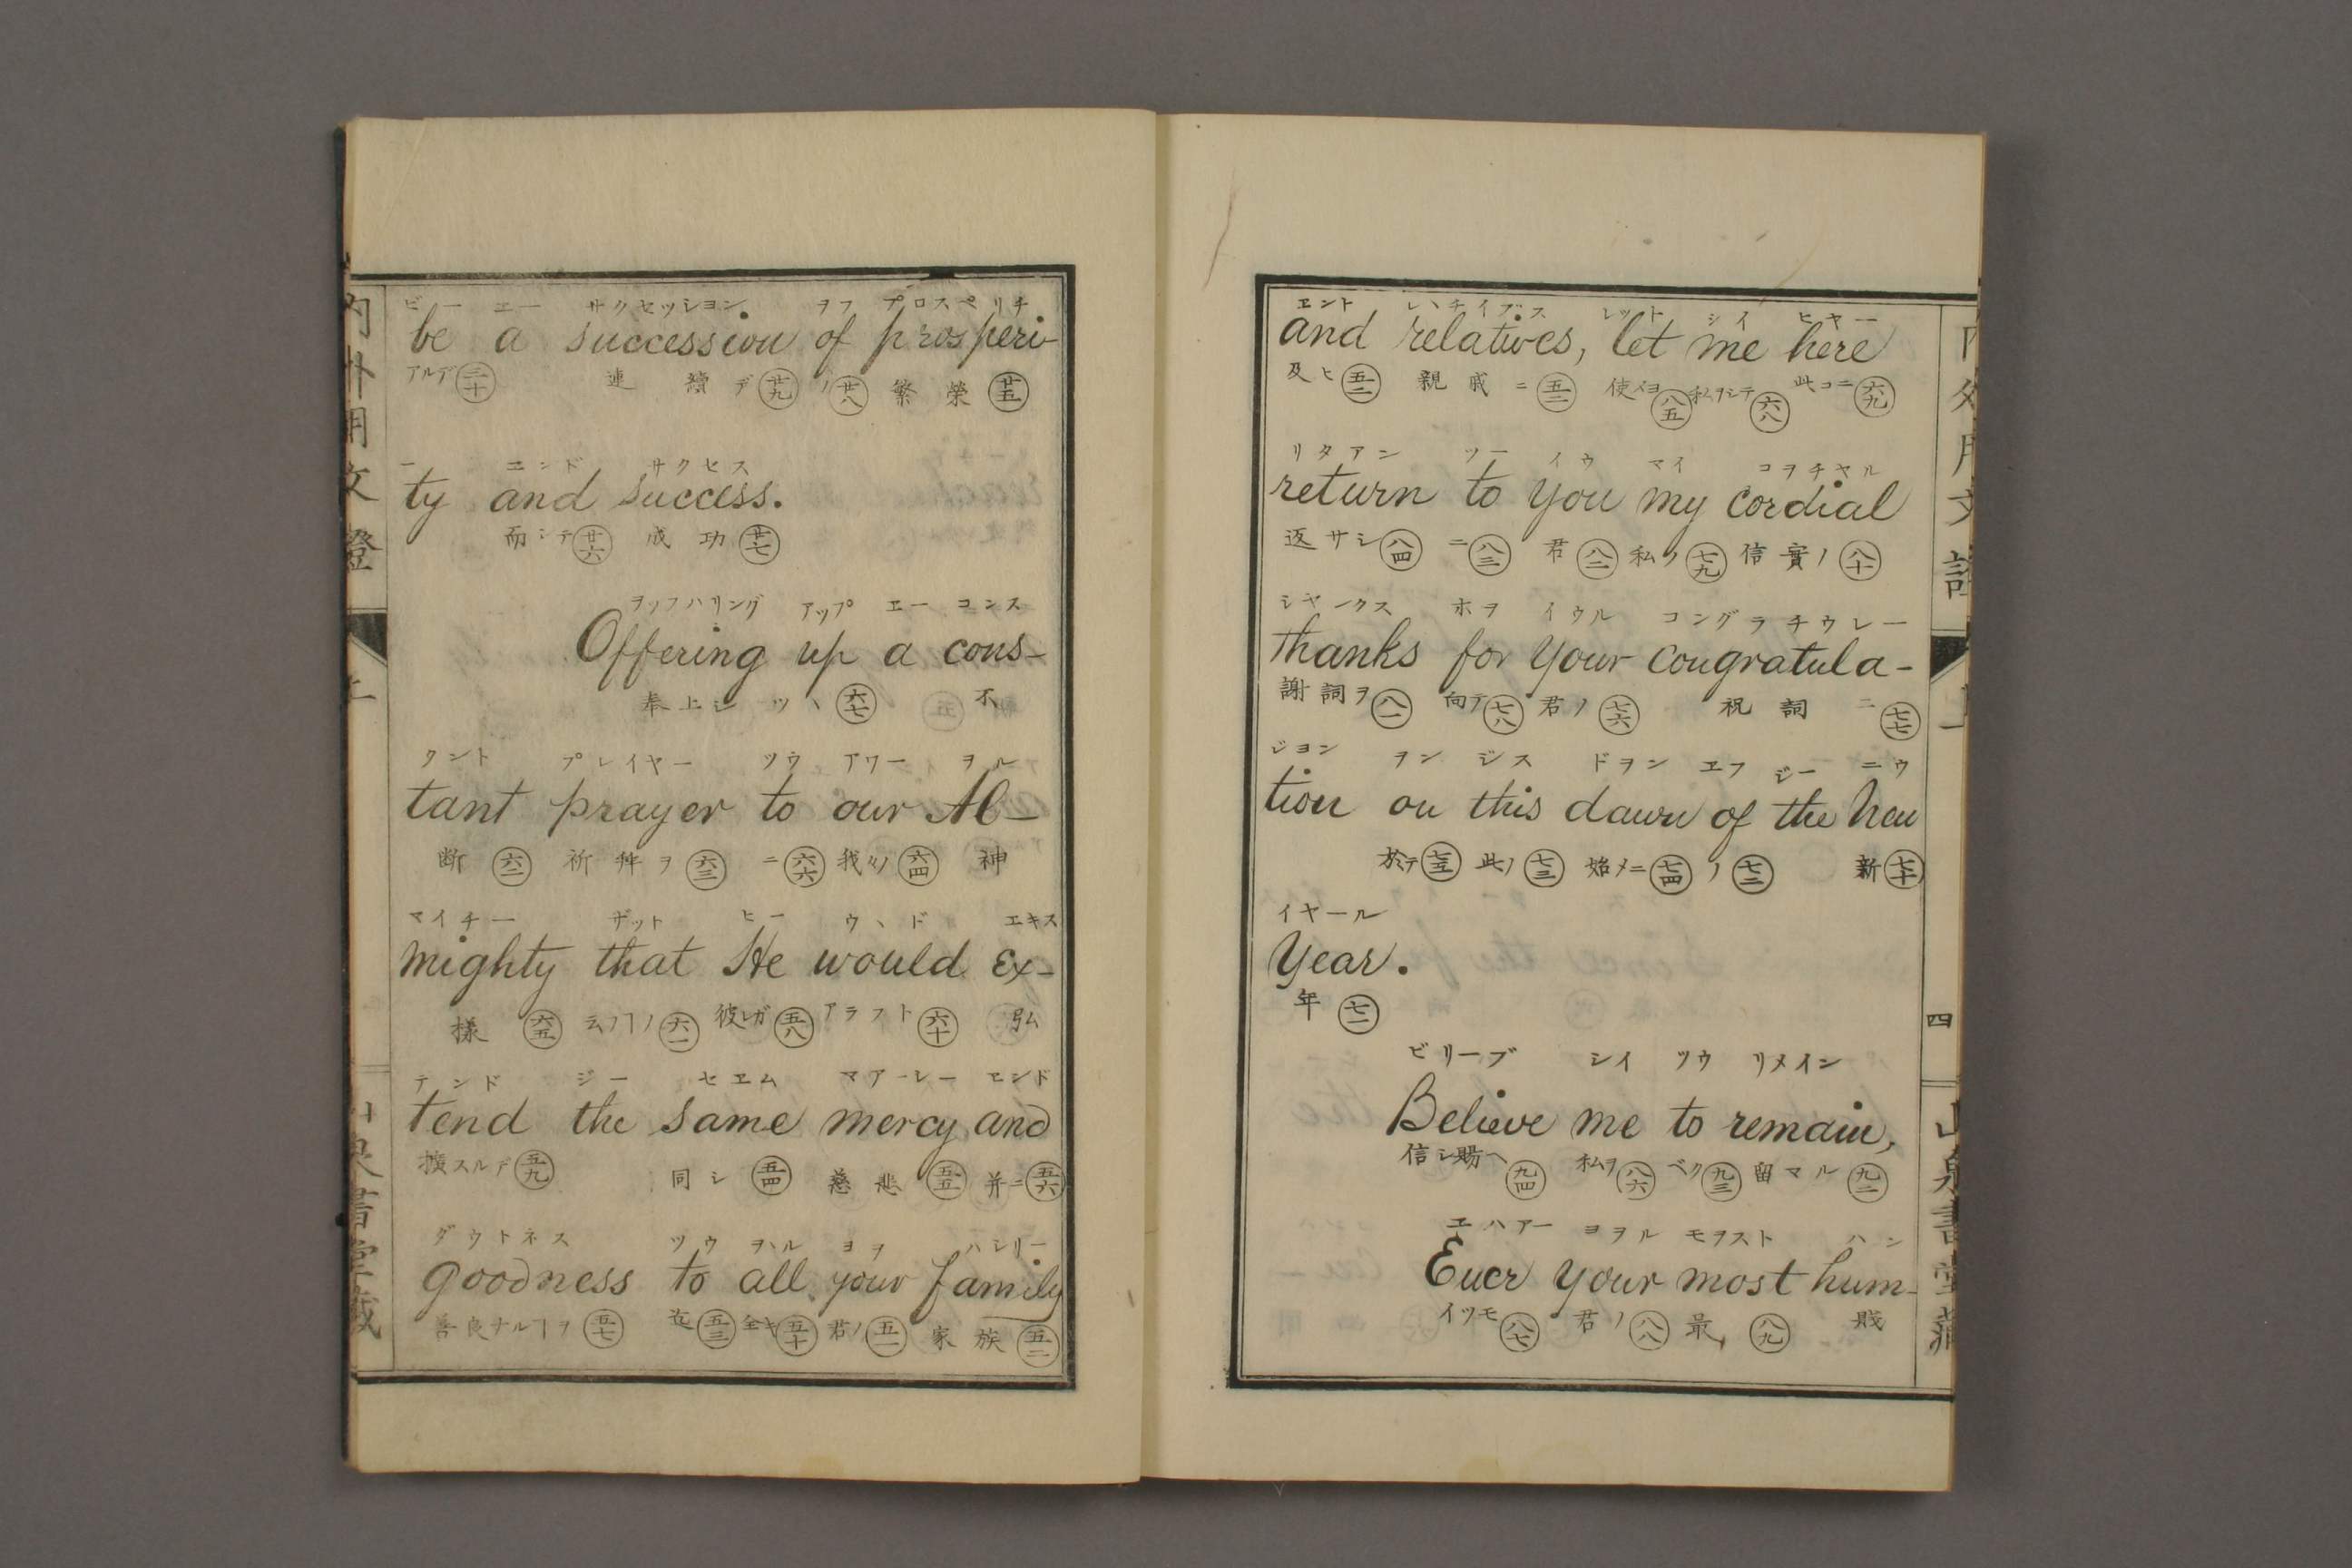 ビー エー サクセッション ヲフ プロスペリチ
be a succession of prosperi-
アルデ 三十 連續デ 廿九 ノ 廿八 繁榮 廿五
ー エンド サクセス
ty and success.
而シテ 廿六 成功 廿七
ヲッフハリング アップ エー コンス
Offering up a cons-
奉上シツヽ 六七 不
タント プレイヤー ツウ アワー ヲル
tant prayer to our Al-
断 六二 祈拜ヲ 六三 ニ 六六 我々ノ 六四 神
マイチー ザット ヒー ウヽド エキス
mighty that He would ex-
樣 六五 云フヿノ 六一 彼レガ 五八 アラフト 六十 弘
テンド ジー セエム マアーレー エンド
tend the same mercy and
擴スルデ 五九 同シ 五四 慈悲 五五 并ニ 五六
ダウトネス ツウ ヲハル ヨヲ ハシリー
goodness to all your family
善良ナルヿヲ 五七 迄 五三 全キ 五十 君ノ 五一 家族 五二
内外用文證
上
山泉書堂藏
エント レヽチイブス レット シイ ヒヤー
and relatives, let me here
及ヒ 五二 親戚ニ 五二 使メヨ 八五 私ヲシテ 六八 此コニ 六九
リタアン ツー イウ マイ コヲチヤル
return to you my cordial
返サシ 八四 ニ 八三 君 八二 私ノ 七九 信實ノ 八十
シヤンクス ホヲ イウル コングラチウレー
thanks for your congratula-
謝詞ヲ 八一 向テ 七八 君ノ 七六 祝詞ニ 七七
ジヨン ヲン ジス ドヲン エフ ジー ニウ
tion on this dawn of the new
於テ 七五 此ノ 七三 始メニ 七四 ノ 七二 新 七十
イヤール
year.
年 七一
ビリーブ シイ ツウ リメイン
Believe me to remain,
信シ賜ヘ 九四 私ヲ 八六 ベク 九三 留マル 九二
エハアー ヨヲル モヲスト ハン
Ever your most hum-
イツモ 八七 君ノ 八八 最 八九 賤
四
山泉書堂藏